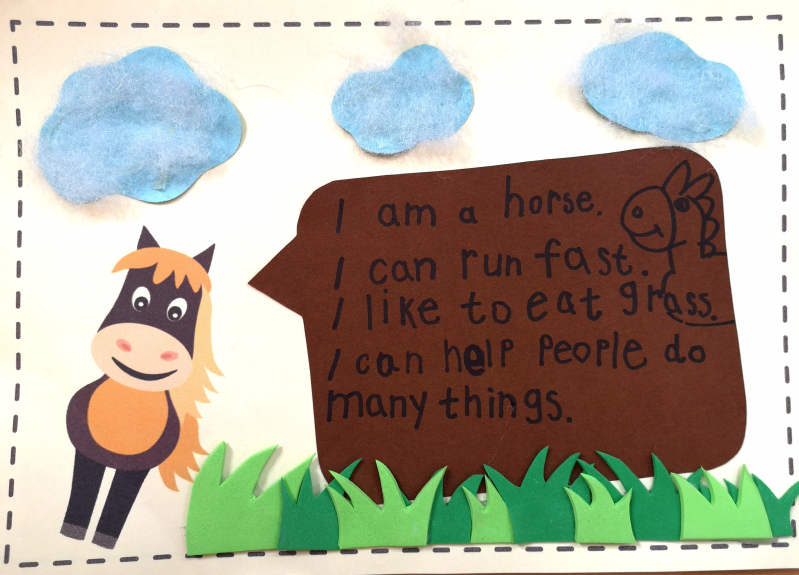 I am a horse.
I can run fast.
I like to eat grass.
I can help people do
many things.